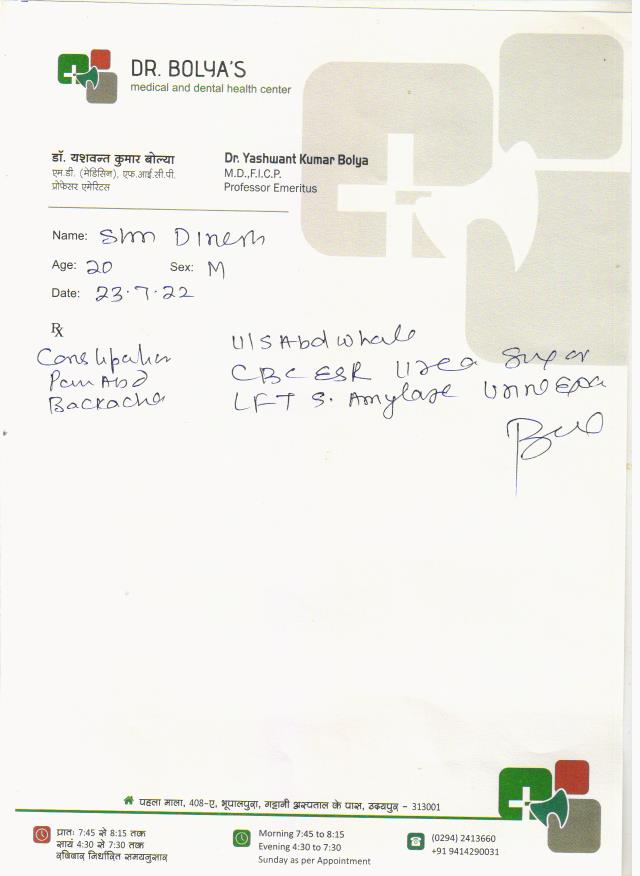 DR. BOLYA'S
medical and dental health center
डॉ. यशवन्त कुमार बोल्या
एम.डी. (मेडिसिन), एफ.आई.सी.पी.
प्रोफेसर एमेरिटस
Dr. Yashwant Kumar Bolya
M.D.,F.I.C.P.
Professor Emeritus
Name: Shri Dinesh
Age: 20 Sex: M
Date: 23.7.22
Rx
Constipation
Pain Abd
Backache
U/S Abd whole
CBC ESR Urea Sugar
LFT S. Amylase Urine Exa
प्रथम माला, 408-ए, भूपालपुरा, गट्टानी अस्पताल के पास, उदयपुर - 313001
प्रातः 7:45 से 8:15 तक
सायं 4:30 से 7:30 तक
रविवार निर्धारित समयनुसार
Morning 7:45 to 8:15
Evening 4:30 to 7:30
Sunday as per Appointment
(0294) 2413660
+91 9414290031